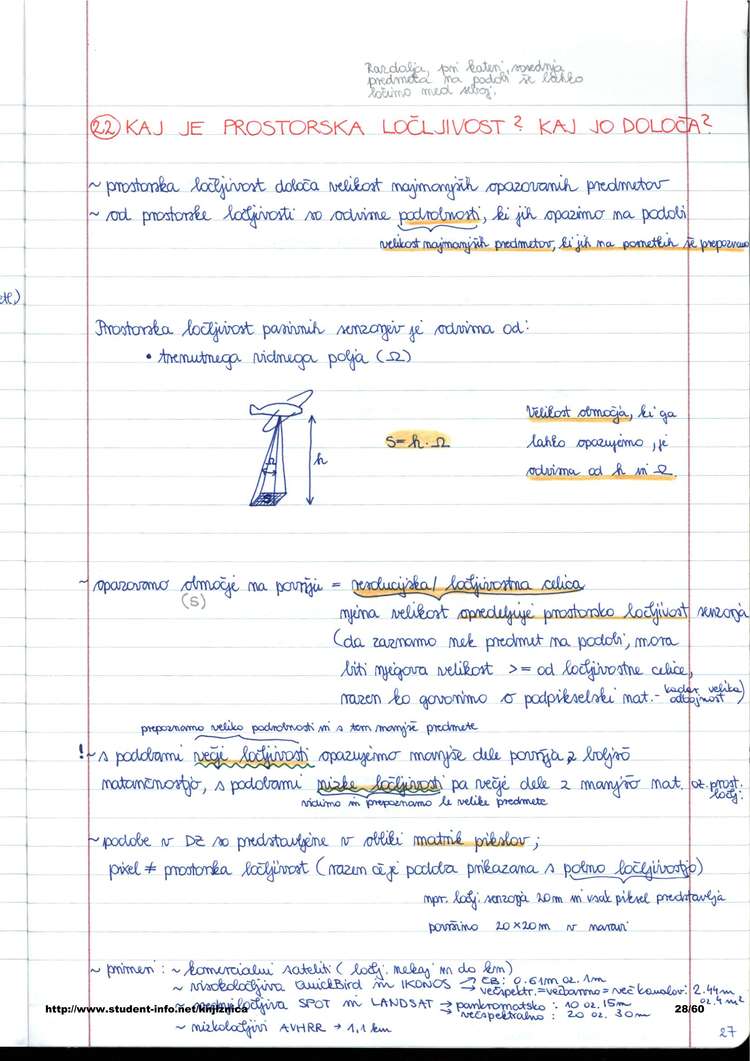 Razdalja, pri kateri sosednja
predmeta na podobi še lahko
ločimo med seboj.
22 KAJ JE PROSTORSKA LOČLJIVOST? KAJ JO DOLOČA?
~ prostorska ločljivost določa velikost najmanjših opazovanih predmetov
~ od prostorske ločljivosti so odvisne podrobnosti, ki jih opazimo na podobi
velikost najmanjših predmetov, ki jih na posnetkih še prepoznamo
Prostorska ločljivost pasivnih senzorjev je odvisna od:
• trenutnega vidnega polja (Ω)
Velikost območja, ki ga
S = h · Ω
lahko opazujemo, je
h
Ω
odvisna od h in Ω.
S
~ opazovano območje na površju = resolucijska / ločljivostna celica
(S)
njena velikost opredeljuje prostorsko ločljivost senzorja
(da zaznamo nek predmet na podobi, mora
biti njegova velikost >= od ločljivostne celice,
razen ko govorimo o podpikselski nat. - kadar velika odbojnost)
prepoznamo veliko podrobnosti in s tem manjše predmete
! ~ s podobami večje ločljivosti opazujemo manjše dele površja z boljšo
natančnostjo, s podobami nizke ločljivosti pa večje dele z manjšo nat. oz. prost. ločlj.
vidimo in prepoznamo le velike predmete
~ podobe v DZ so predstavljene v obliki matrik pikslov;
pixel ≠ prostorska ločljivost (razen če je podoba prikazana s polno ločljivostjo)
npr. ločlj. senzorja 20m in vsak piksel predstavlja
površino 20×20m v naravi
~ primeri: ~ komercialni sateliti (ločlj. nekaj m do km)
~ visokoločljiva QuickBird in IKONOS → ČB: 0.61m oz. 1m
→ večspektr. = večbarvno = več kanalov: 2.44m oz. 4m²
~ srednjeločljiva SPOT in LANDSAT → pankromatsko: 10 oz. 15m
večspektralno: 20 oz. 30m
http://www.student-info.net/knjiznica
28/60
~ nizkoločljivi AVHRR → 1,1 km
27